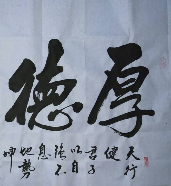 厚德
天行
健
君子
以自
强不
息
地勢
坤